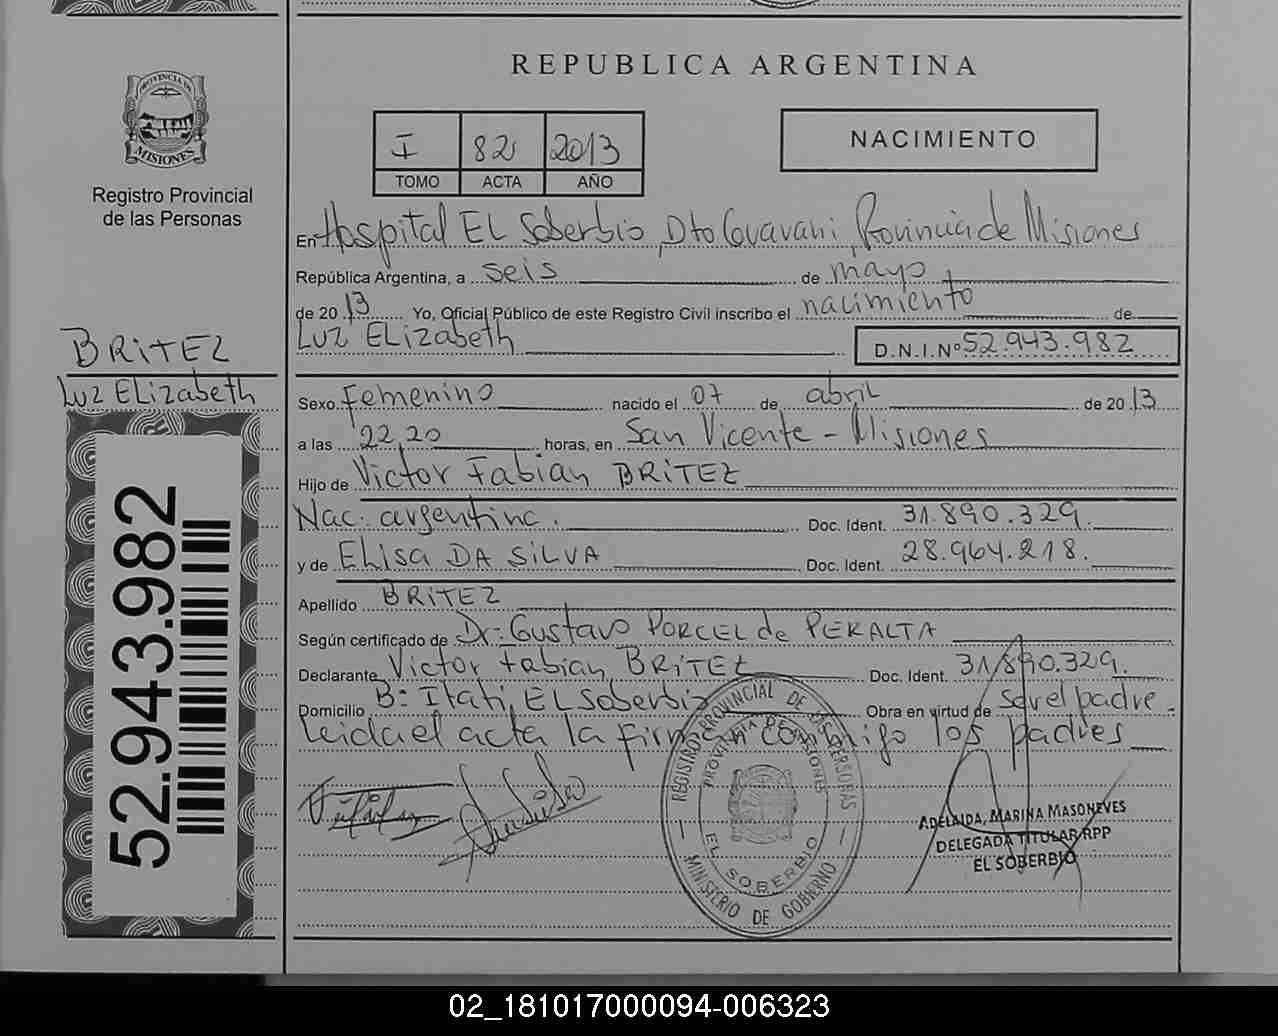 REPUBLICA ARGENTINA
PROVINCIA DE
MISIONES
Registro Provincial
de las Personas
I 82 2013
TOMO ACTA AÑO
NACIMIENTO
En Hospital EL Soberbio, Dto Guarani, Provincia de Misiones
República Argentina, a seis de mayo
de 2013 Yo, Oficial Público de este Registro Civil inscribo el nacimiento de
Luz ELizabeth D.N.I.Nº 52.943.982
BRITEZ
Luz ELizabeth
Sexo Femenino nacido el 07 de abril de 2013
a las 22,20 horas, en San Vicente - Misiones
Hijo de Victor Fabian BRITEZ
Nac: argentina. Doc. Ident. 31.890.329.
y de ELisa DA SILVA Doc. Ident. 28.964.218.
Apellido BRITEZ
Según certificado de Dr: Gustavo PORCEL de PERALTA
Declarante Victor Fabian BRITEZ Doc. Ident. 31.890.329.
Domicilio B: Itati, EL Soberbio Obra en virtud de ser el padre.
Leida el acta la firman conmigo los padres
52.943.982
REGISTRO PROVINCIAL DE LAS PERSONAS
PROVINCIA DE MISIONES
EL SOBERBIO
MINISTERIO DE GOBIERNO
ADELAIDA, MARINA MASONEVES
DELEGADA TITULAR RPP
EL SOBERBIO
02_181017000094-006323